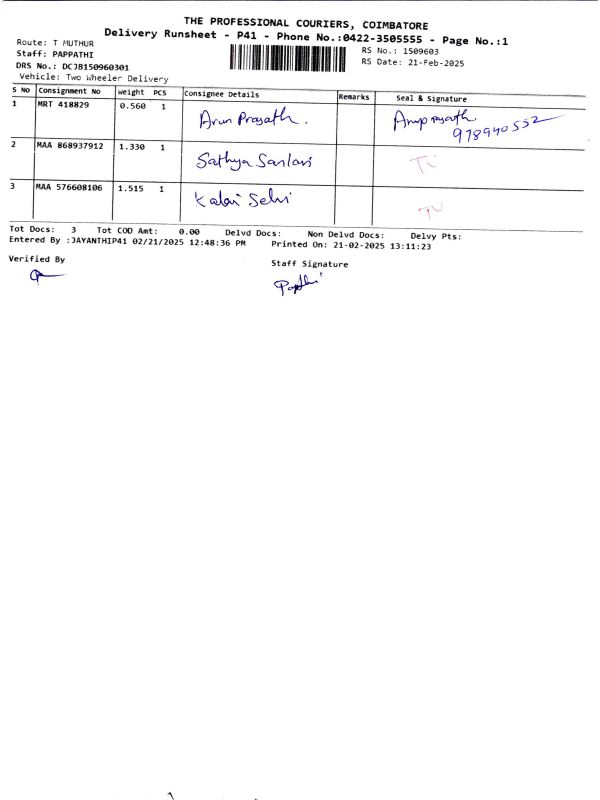 THE PROFESSIONAL COURIERS, COIMBATORE
Delivery Runsheet - P41 - Phone No.:0422-3505555 - Page No.:1
Route: T MUTHUR
Staff: PAPPATHI
DRS No.: DCJB150960301
Vehicle: Two Wheeler Delivery
RS No.: 1509603
RS Date: 21-Feb-2025
S No Consignment No Weight PCS Consignee Details Remarks Seal & Signature
1 MRT 418829 0.560 1 Arun Prasath.
978940552
2 MAA 868937912 1.330 1 Sathya TU
3 MAA 576608106 1.515 1 Kalai Selvi TU
Tot Docs: 3 Tot COD Amt: 0.00 Delvd Docs: Non Delvd Docs: Delvy Pts:
Entered By :JAYANTHIP41 02/21/2025 12:48:36 PM Printed On: 21-02-2025 13:11:23
Verified By Staff Signature